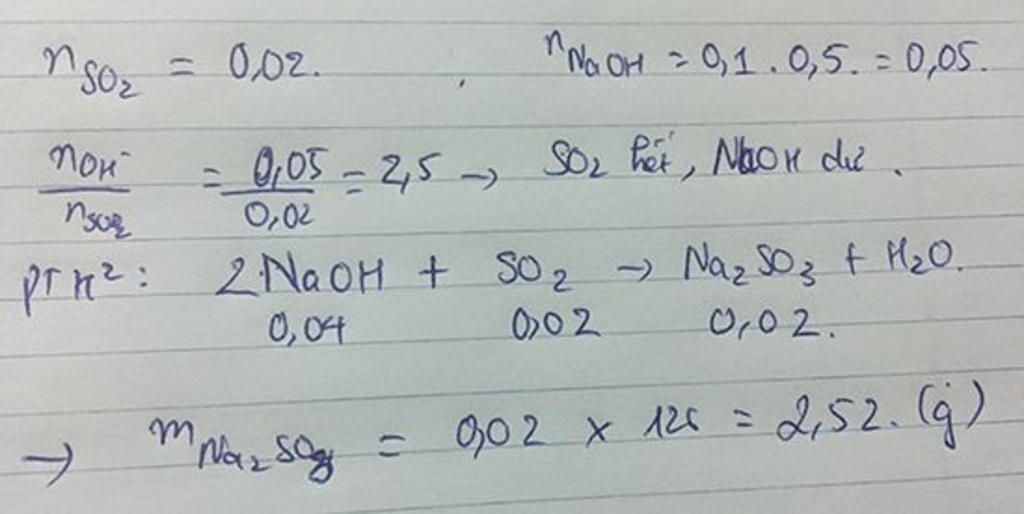 nSO2 = 0,02. nNaOH = 0,1 . 0,5. = 0,05.
nOH-/nSO2 = 0,05/0,02 = 2,5 → SO2 hết, NaOH dư.
PTH²: 2NaOH + SO2 → Na2SO3 + H2O.
0,04 0,02 0,02.
→ mNa2SO3 = 0,02 x 126 = 2,52. (g)